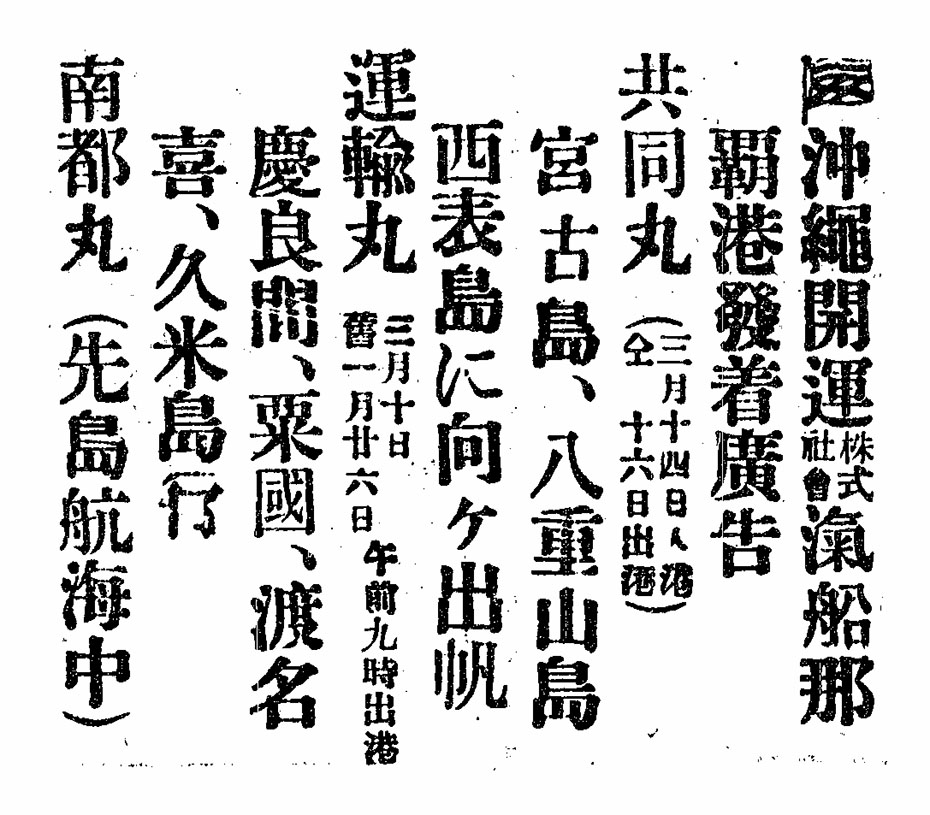 沖繩開運株式會社滊船那
覇港發着廣告
共同丸(三月十四日入港
仝 十六日出港)
宮古島、八重山島
西表島に向ケ出帆
運輸丸 三月十日
舊一月廿六日 午前九時出港
慶良間、粟國、渡名
喜、久米島行
南都丸(先島航海中)